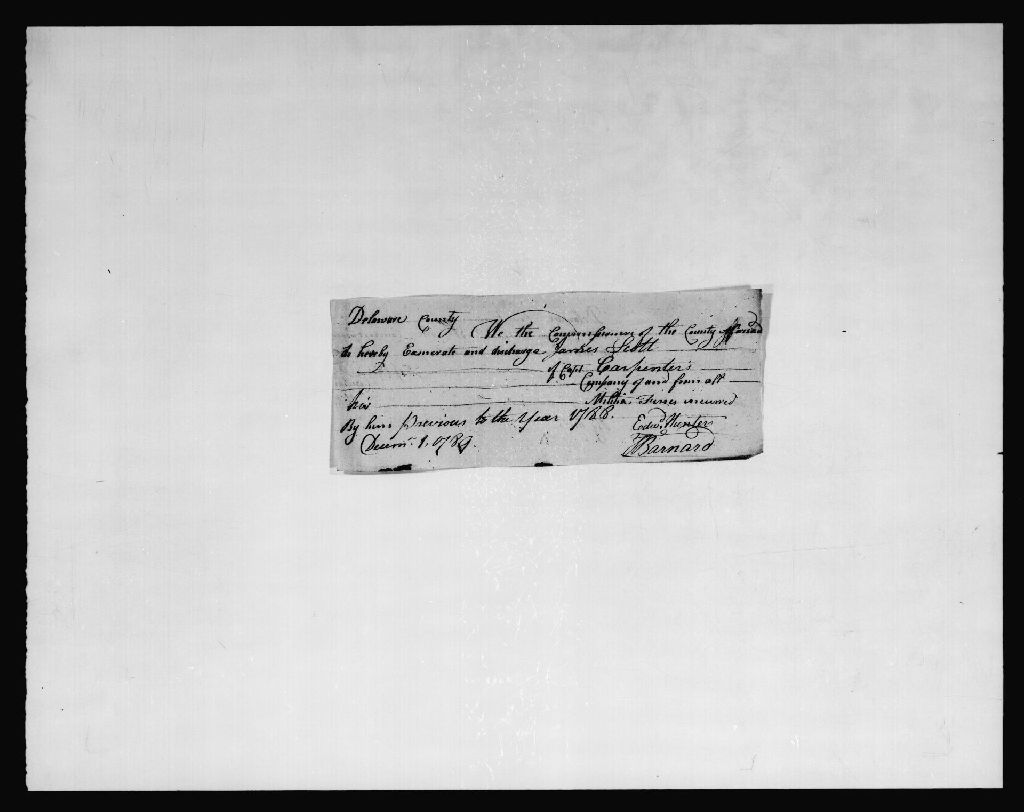 Delaware County
We the Commissioners of the County afforesaid
do hereby Exonerate and discharge James Scott
of Capt Carpenters
Company of and from all
his Militia Fines incurred
By him previous to the Year 1788.
Edwd. Hunter
Decemr. 1. 1789.
Barnard